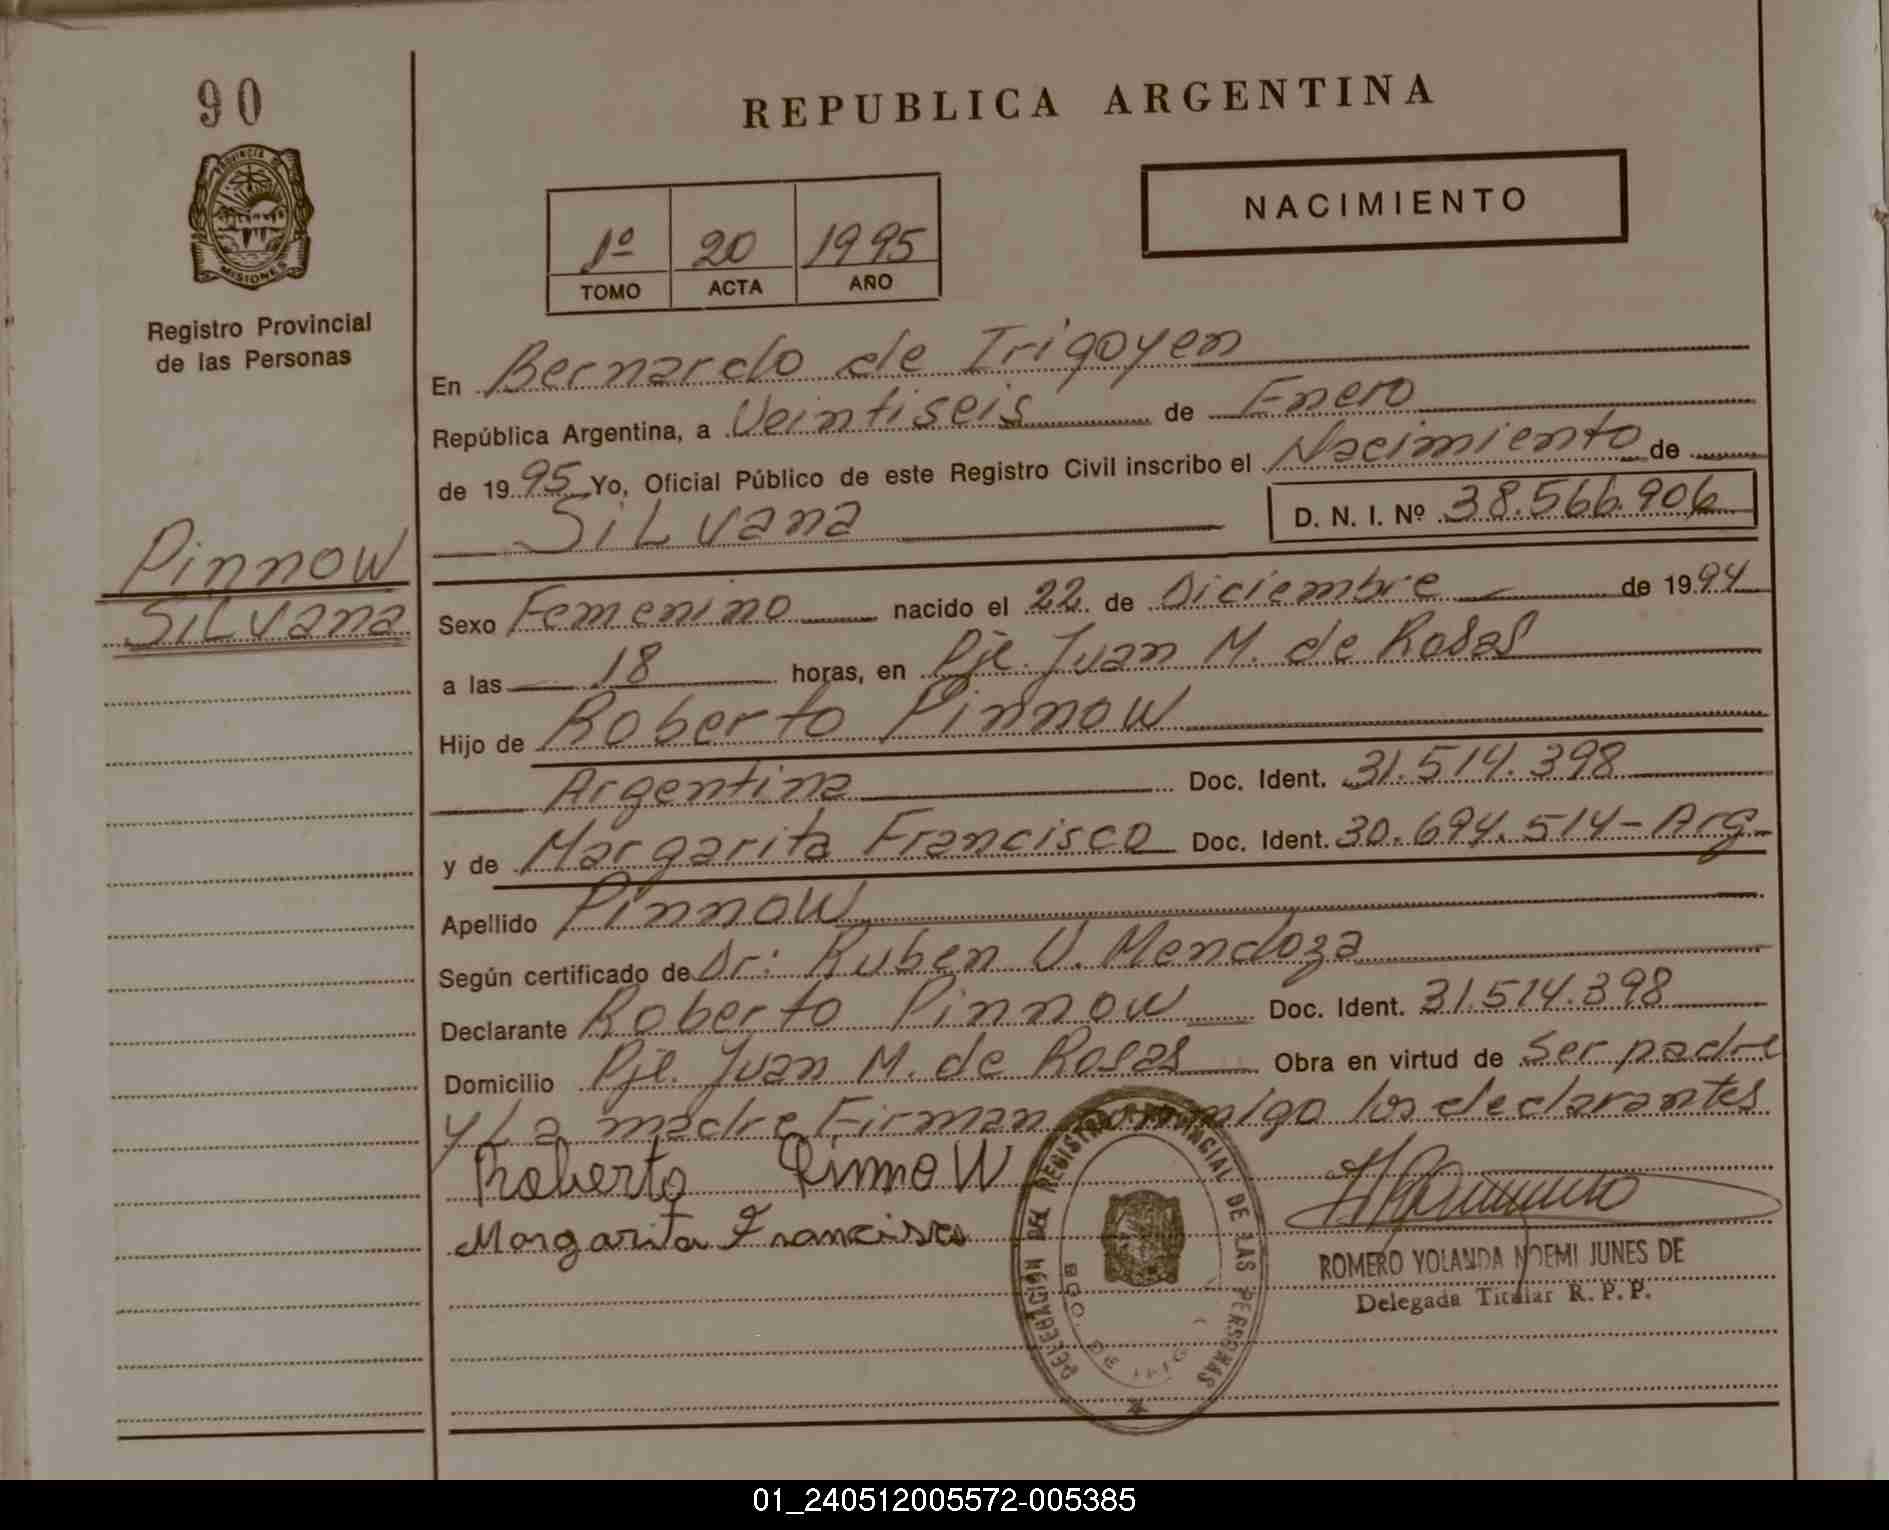 90
PROVINCIA DE
MISIONES
Registro Provincial
de las Personas
Pinnow
Silvana
REPUBLICA ARGENTINA
NACIMIENTO
1º 20 1995
TOMO ACTA AÑO
En Bernardo de Irigoyen
República Argentina, a Veintiseis de Enero
de 1995 Yo, Oficial Público de este Registro Civil inscribo el Nacimiento de
Silvana D. N. I. Nº 38.566.906
Sexo Femenino nacido el 22 de Diciembre de 1994
a las 18 horas, en Pje. Juan M. de Rosas
Hijo de Roberto Pinnow
Argentina Doc. Ident. 31.514.398
y de Margarita Francisco Doc. Ident. 30.694.514-Arg
Apellido Pinnow
Según certificado de Dr: Ruben V. Mendoza
Declarante Roberto Pinnow Doc. Ident. 31.514.398
Domicilio Pje. Juan M. de Rosas Obra en virtud de Ser padre
y La madre Firman conmigo los declarantes
Roberto Pinnow
Margarita Francisco
DELEGACIÓN DEL REGISTRO PROVINCIAL DE LAS PERSONAS
BDO. DE IRIG
ROMERO YOLANDA NOEMI JUNES DE
Delegada Titular R. P. P.
01_240512005572-005385